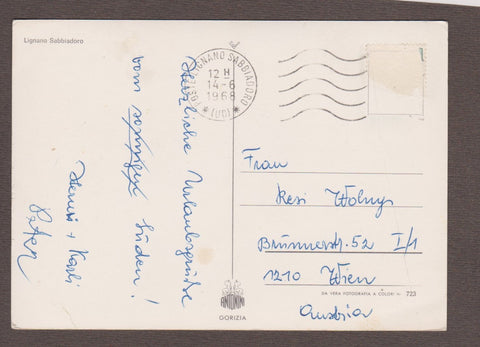 Lignano Sabbiadoro
LIGNANO SABBIADORO
12 H
14-6
1968
* (UD) *
Herzliche Urlaubsgrüße
vom sonnigen Süden!
+ Karli
Peter
Frau
Resi Wolny
Brünnerstr. 52 I/1
1210 Wien
Austria
GORIZIA
DA VERA FOTOGRAFIA A COLORI
723